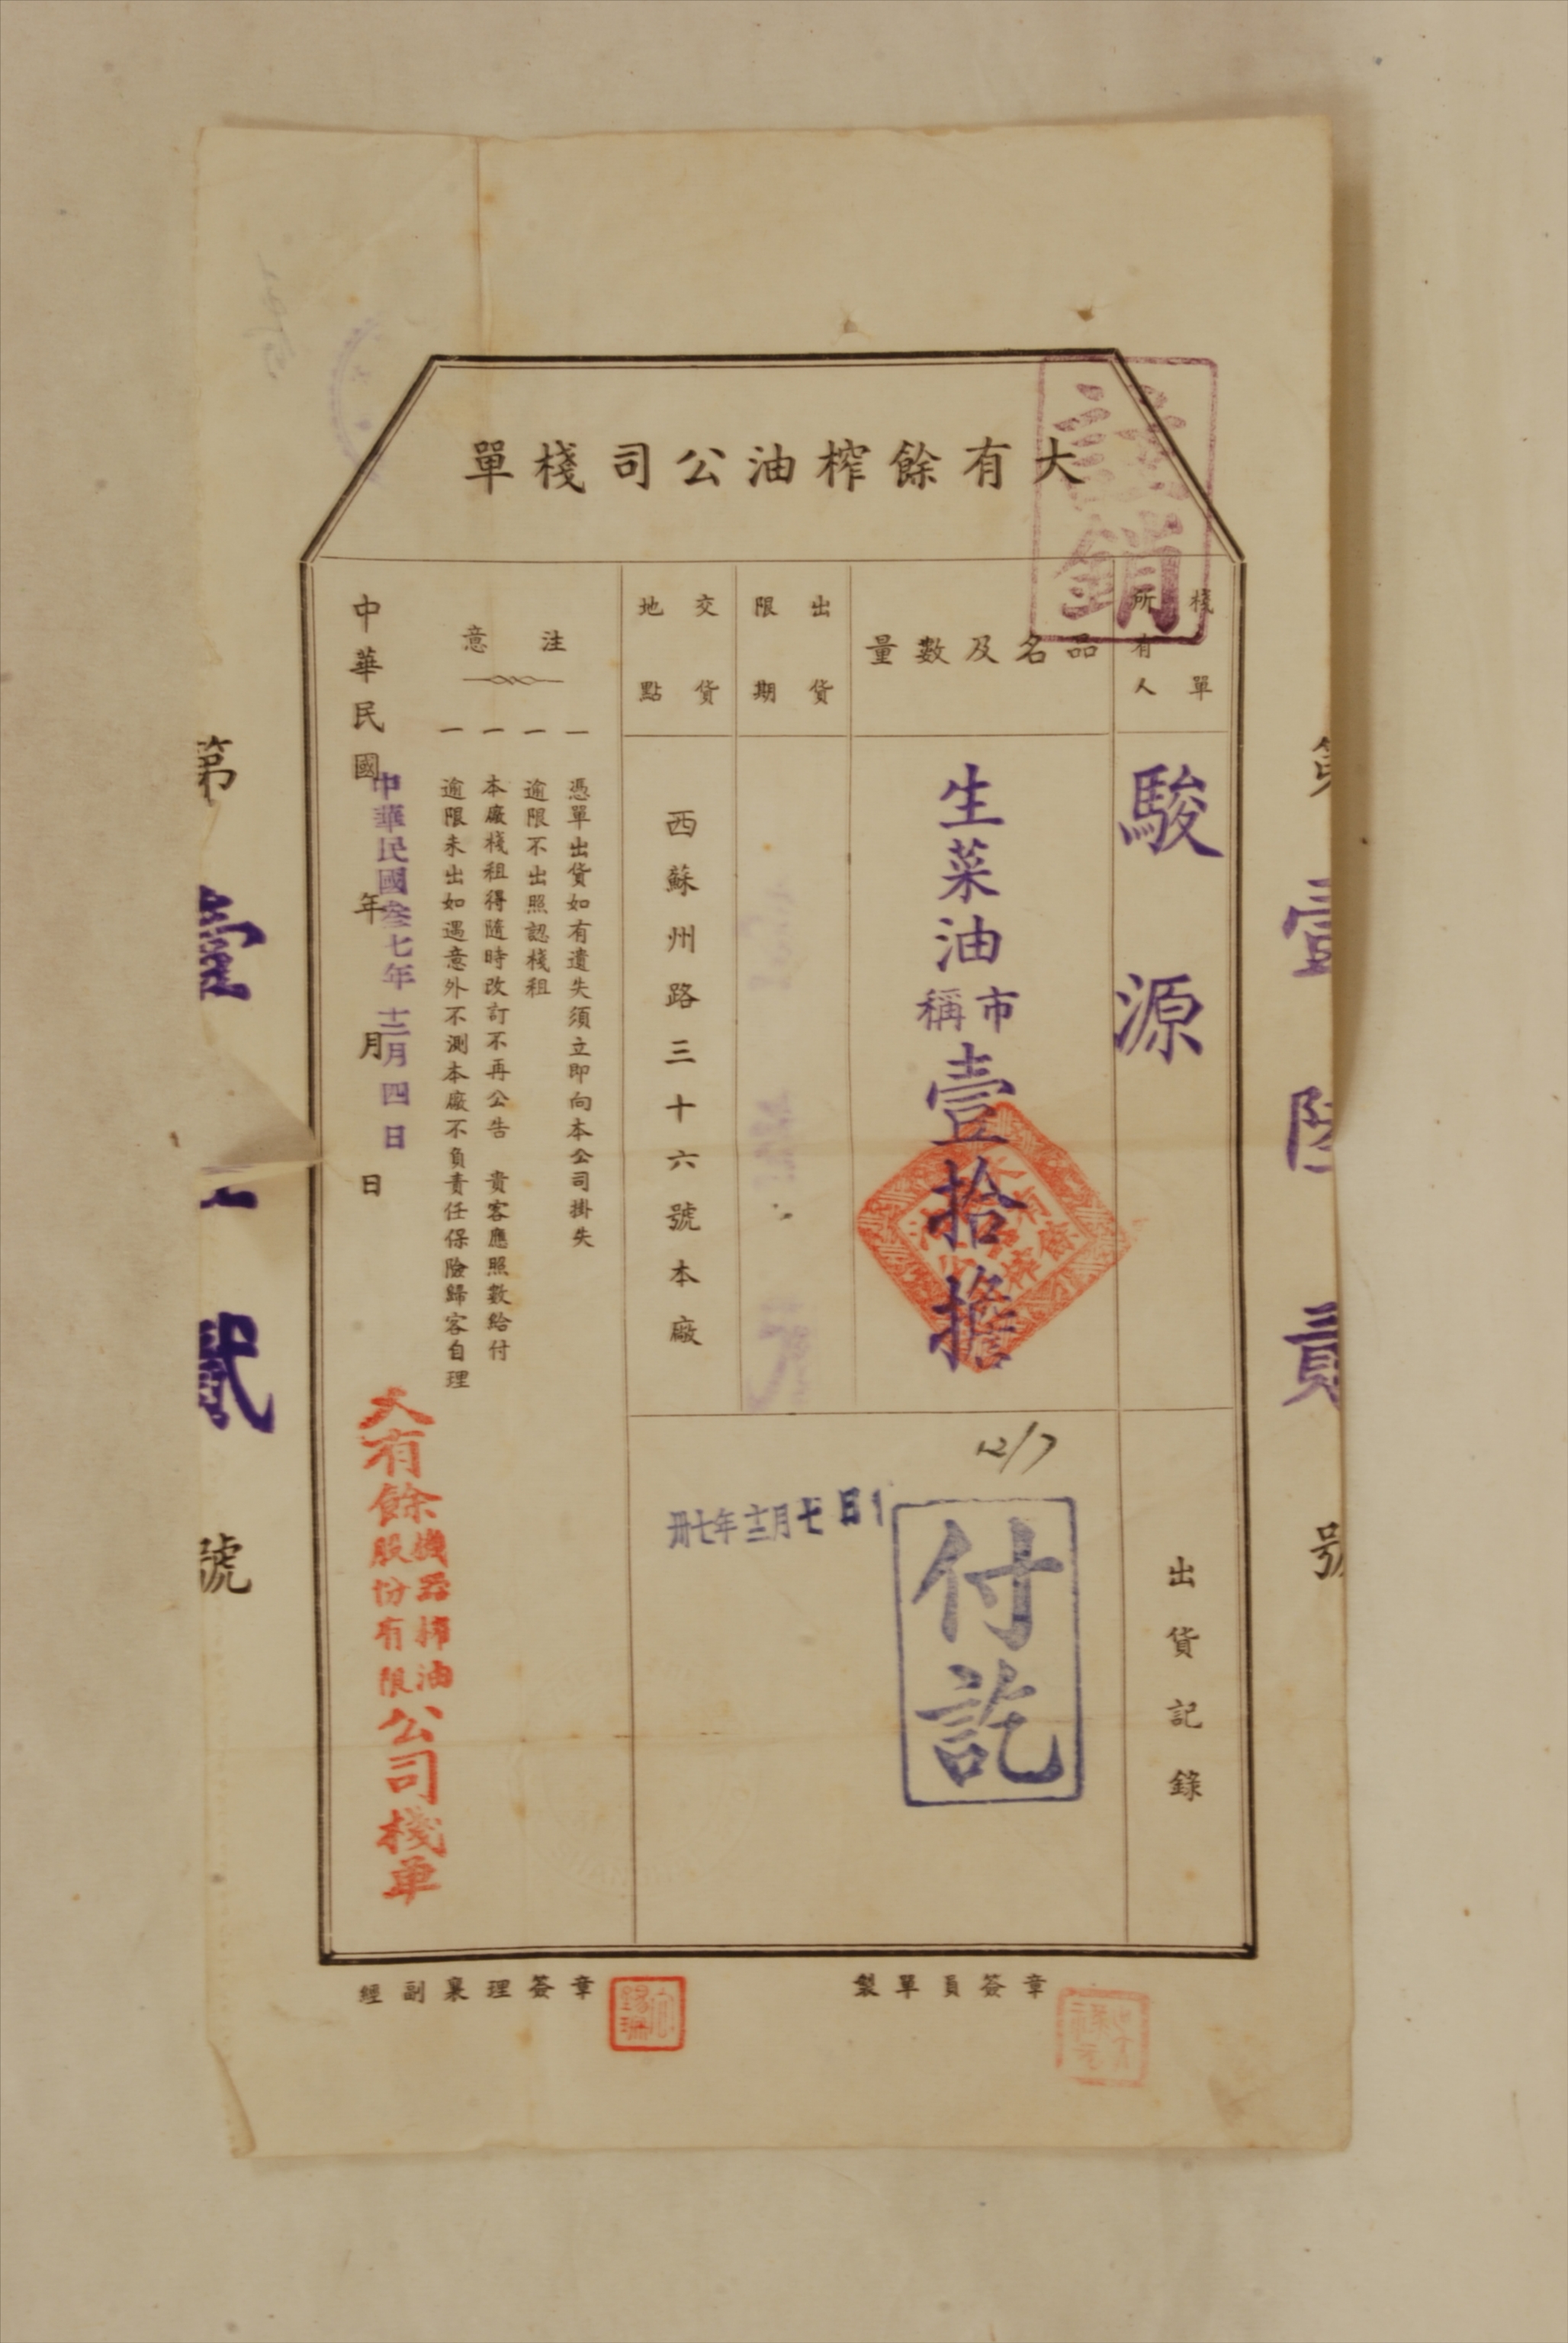 大有餘榨油公司棧單
註銷
棧單所有人
駿源
品名及數量
生菜油市稱壹拾擔
出貨限期
交貨地點
西蘇州路三十六號本廠
注意
一 憑單出貨如有遺失須立即向本公司掛失
一 逾限不出照認棧租
一 本廠棧租得隨時改訂不再公告 貴客應照數給付
一 逾限未出如遇意外不測本廠不負責任保險歸客自理
中華民國 年 月 日
中華民國叁七年十二月四日
大有餘機器榨油股份有限公司棧單
出貨記錄
12/7
付訖
卅七年十二月七日
製單員簽章
經副襄理簽章
第壹陸貳號
第壹 貳號